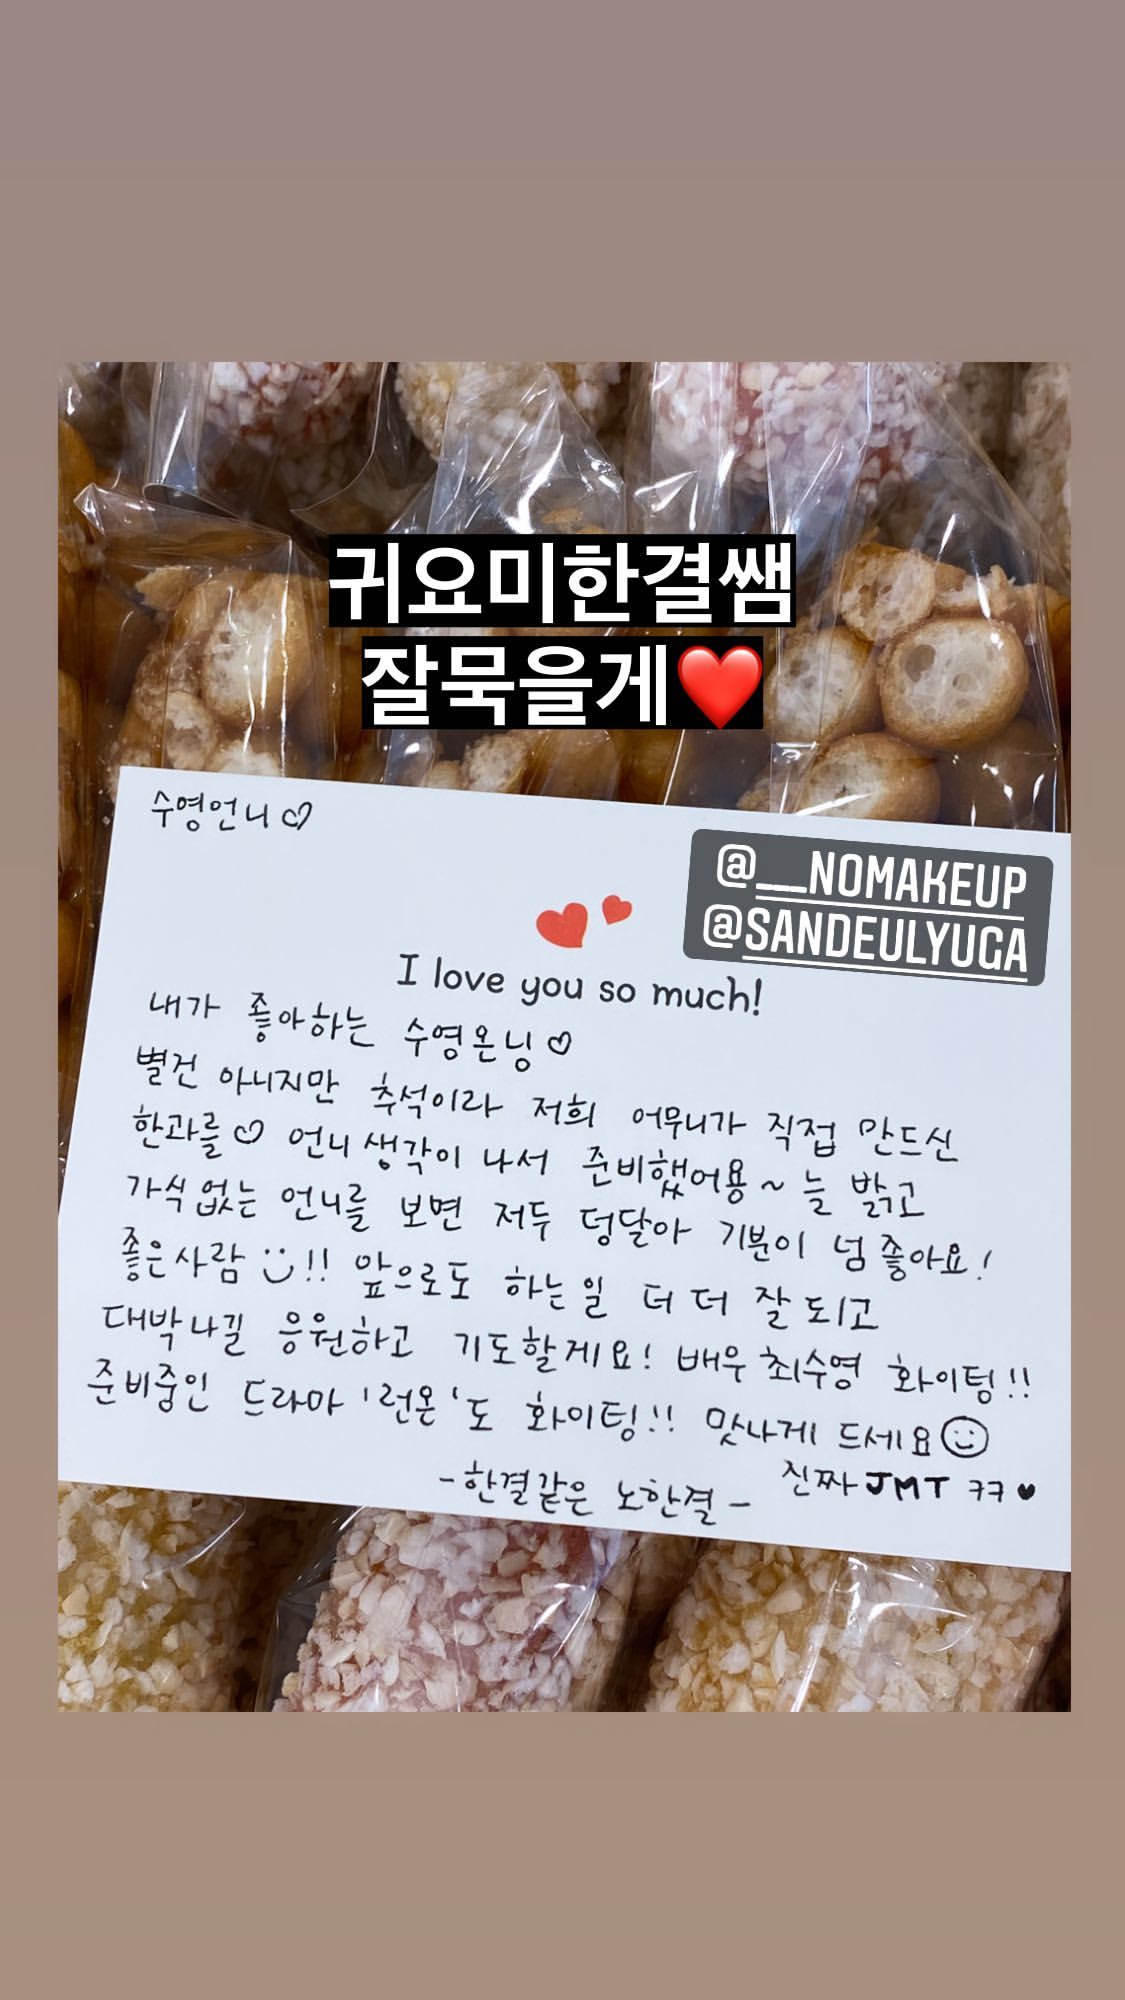 귀요미한결쌤
잘묵을게❤️
수영언니♡
@___NOMAKEUP
@SANDEULYUGA
I love you so much!
내가 좋아하는 수영온닝♡
별건 아니지만 추석이라 저희 어무니가 직접 만드신
한과를♡ 언니생각이 나서 준비했어용~ 늘 밝고
가식없는 언니를 보면 저두 덩달아 기분이 넘좋아요!
좋은사람 !! 앞으로도 하는일 더 더 잘되고
대박나길 응원하고 기도할게요! 배우최수영 화이팅!!
준비중인 드라마 '런온'도 화이팅!! 맛나게 드세요
-한결같은 노한결-
진짜JMT ㅋㅋ♥